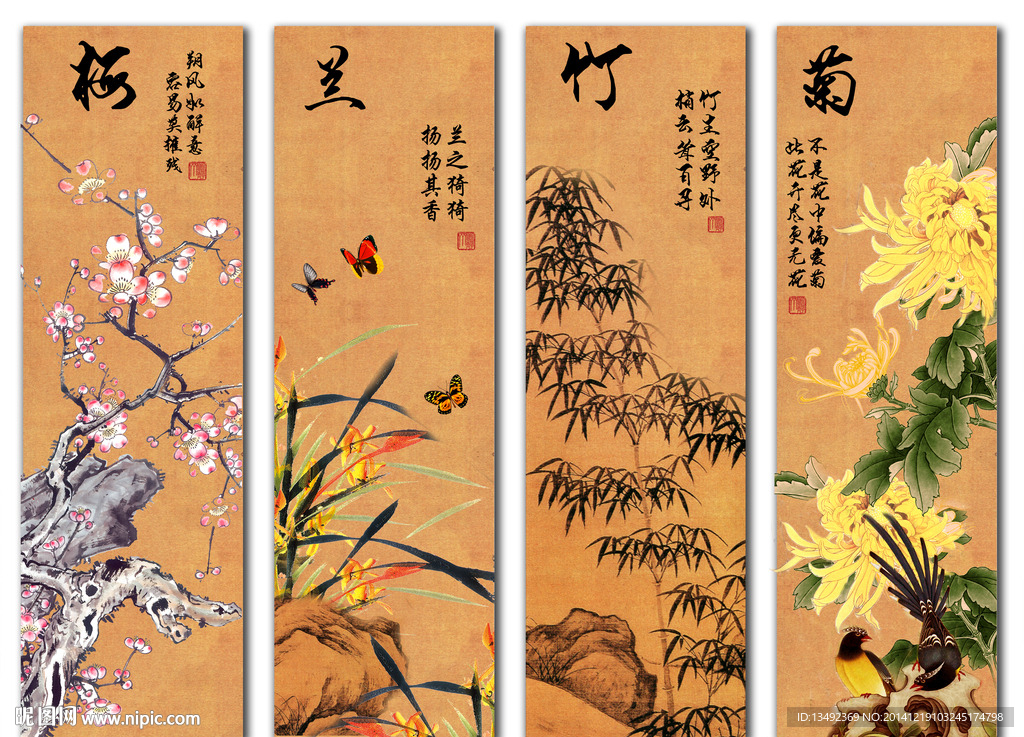 梅
朔风如解意
容易莫摧残
兰
兰之猗猗
扬扬其香
竹
竹生空野外
梢云耸百寻
菊
不是花中偏爱菊
此花开尽更无花
昵图网 www.nipic.com
ID:13492369 NO:20141219103245174798